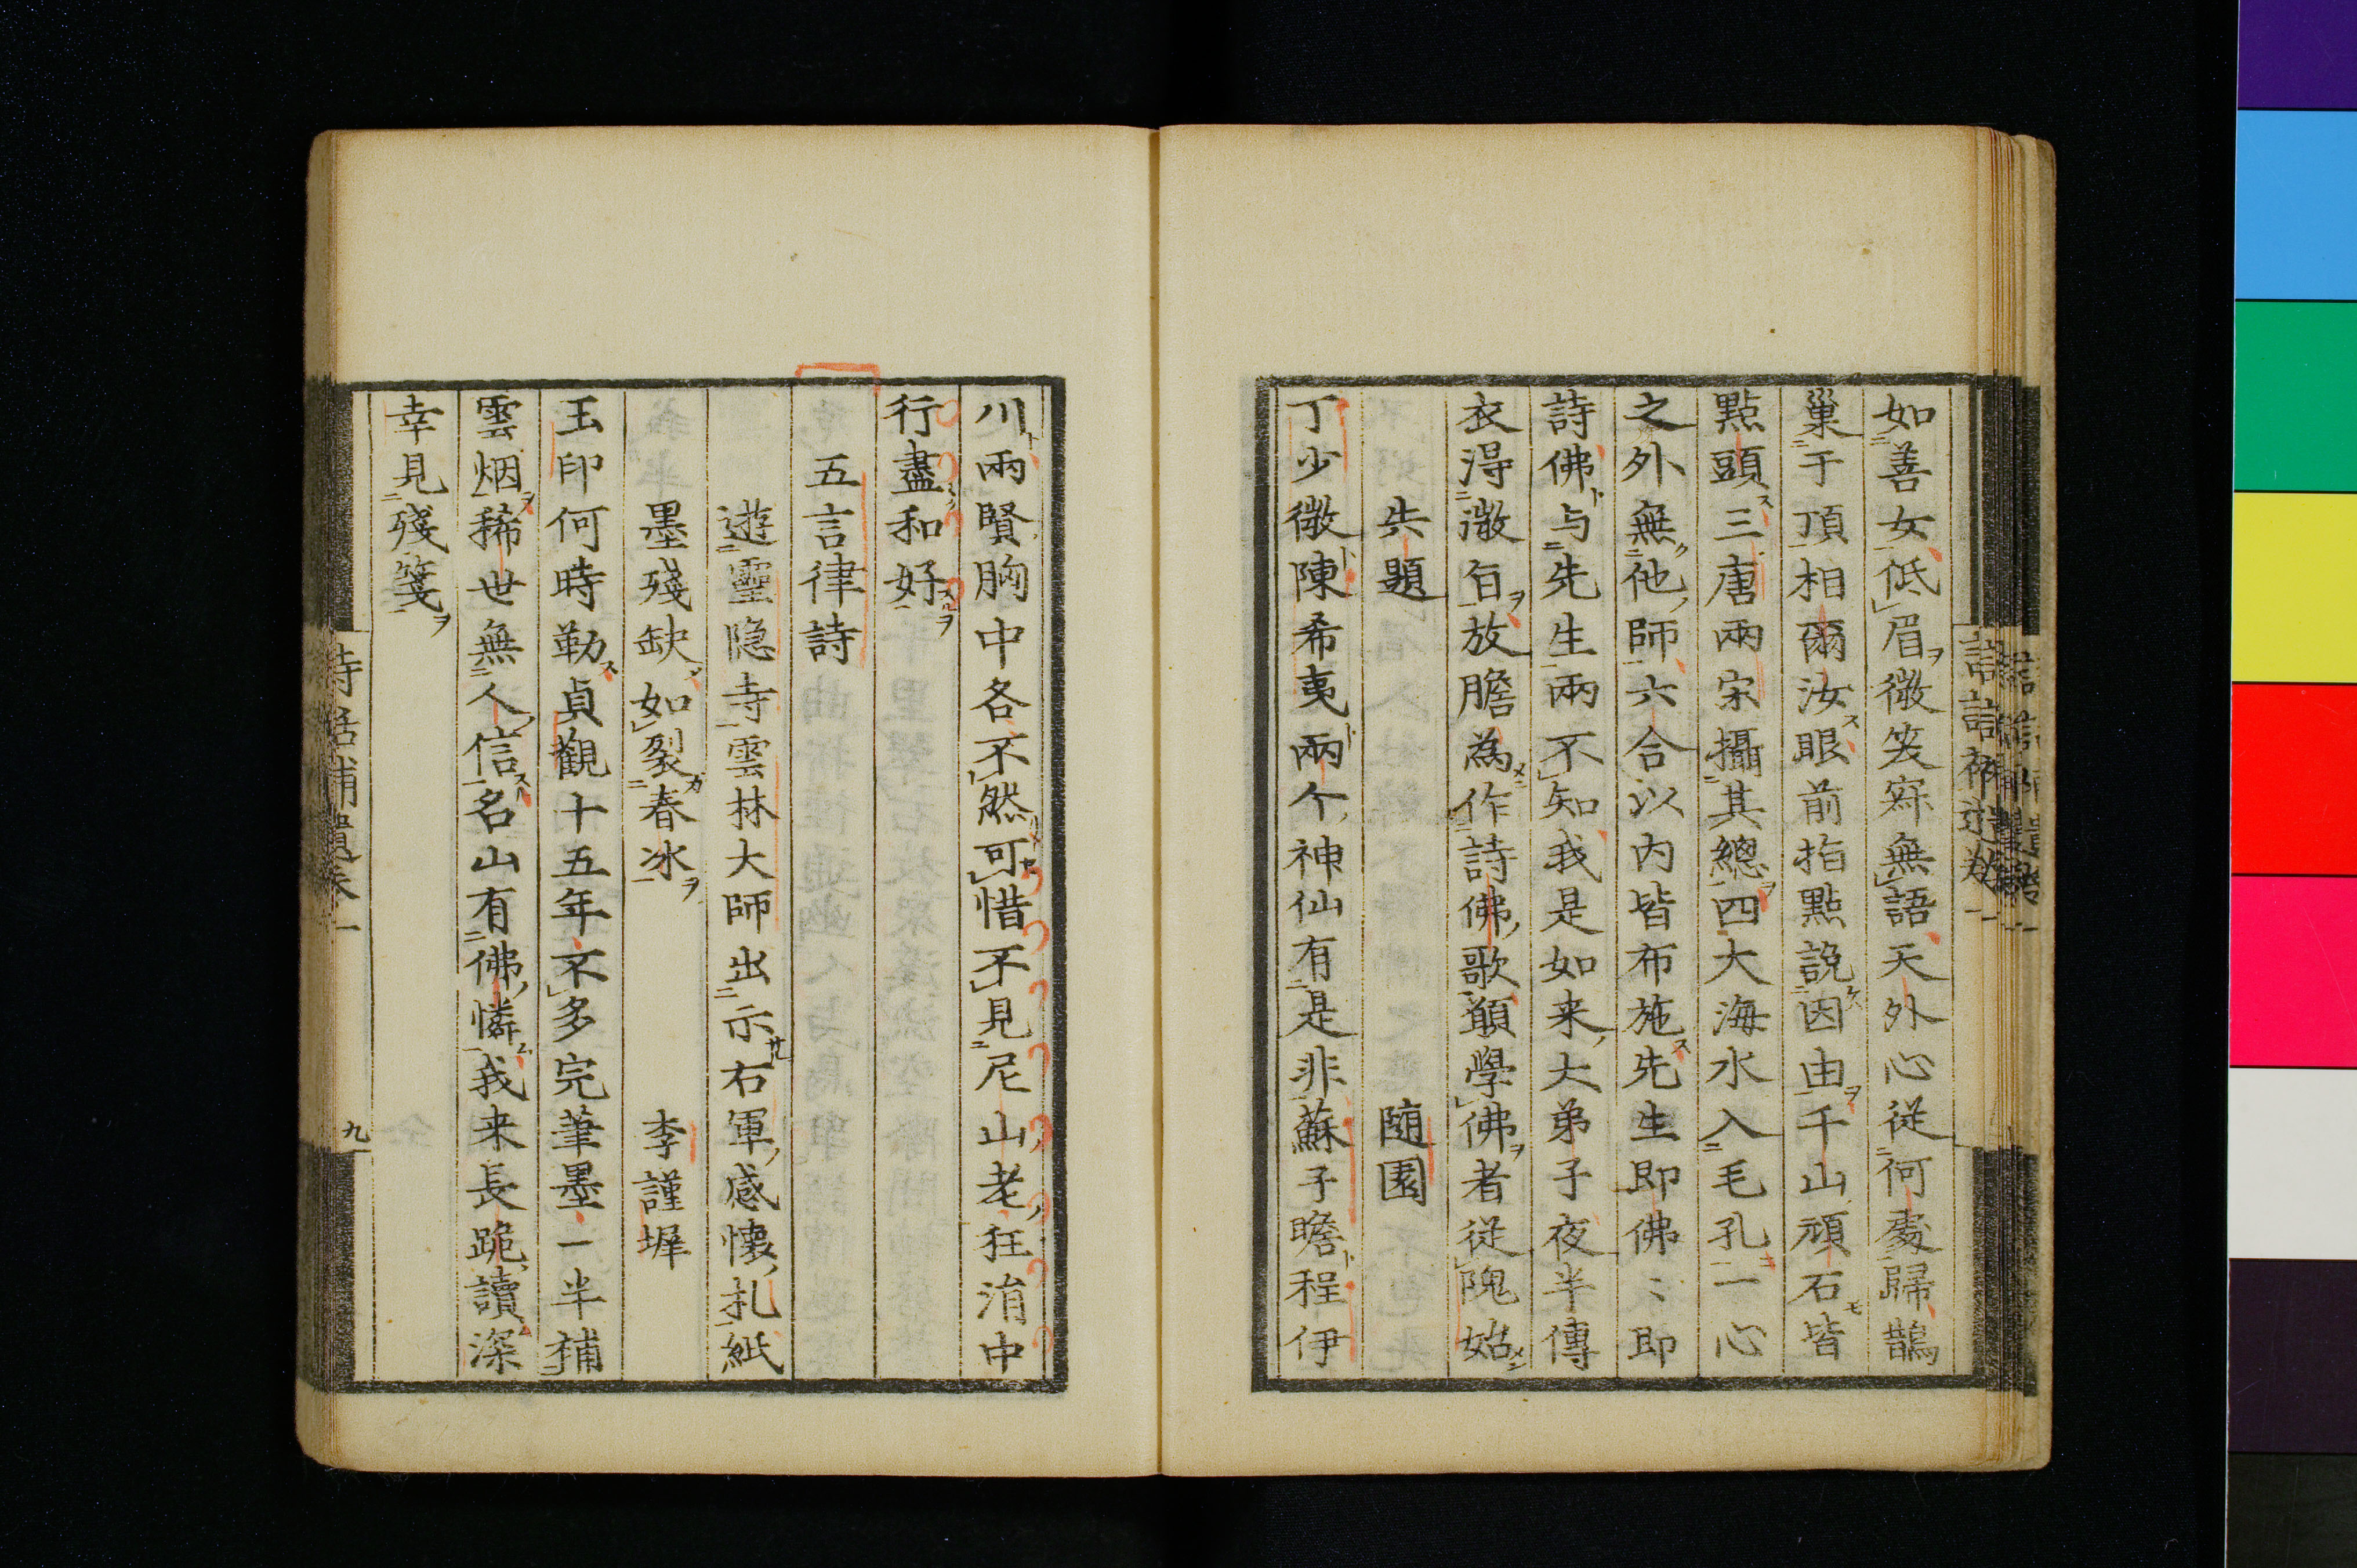 如善女低眉微笑寂無語天外心從何處歸鵲
巢于頂相爾汝眼前指點說因由千山頑石皆
點頭三唐兩宋攝其總四大海水入毛孔一心
之外無他師六合以内皆布施先生即佛〻即
詩佛与先生兩不知我是如来大弟子夜半傳
衣得澂旨放膽為作詩佛歌願學佛者從隗始
失題　隨園
丁少微陳希夷兩个神仙有是非蘇子瞻程伊
川兩賢胸中各不然可惜不見尼山老狂涓中
行盡和好
五言律詩
遊靈隐寺雲林大師出示右軍感懷扎紙
墨殘缺如裂春冰　李謹墀
玉印何時勒貞觀十五年不多完筆墨一半補
雲烟稀世無人信名山有佛憐我来長跪讀深
幸見殘箋
詩話補遺卷一
九